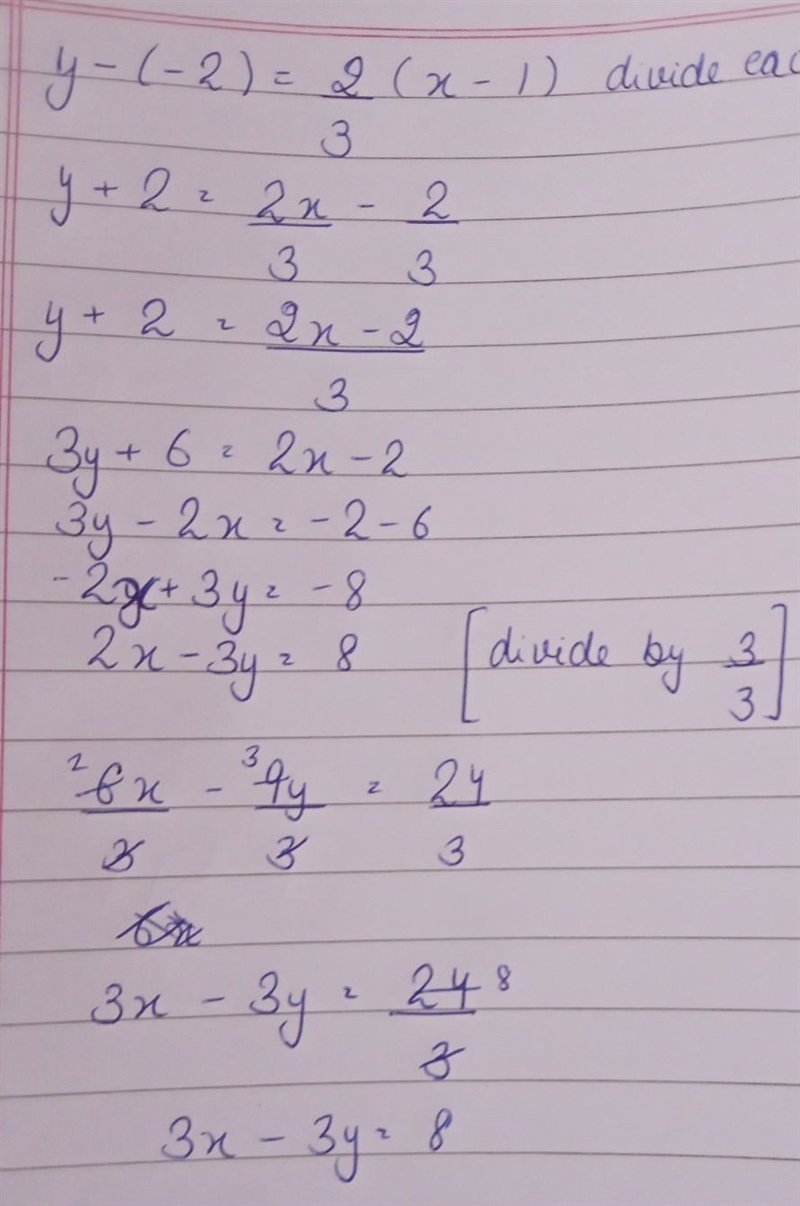 y - (-2) = 2/3 (x - 1) divide eac
y + 2 = 2x/3 - 2/3
y + 2 = (2x - 2)/3
3y + 6 = 2x - 2
3y - 2x = -2 - 6
-2x + 3y = -8
2x - 3y = 8 [divide by 3/3]
2 6x/3 - 3 9y/3 = 24/3
6x
3x - 3y = 24/3 8
3x - 3y = 8